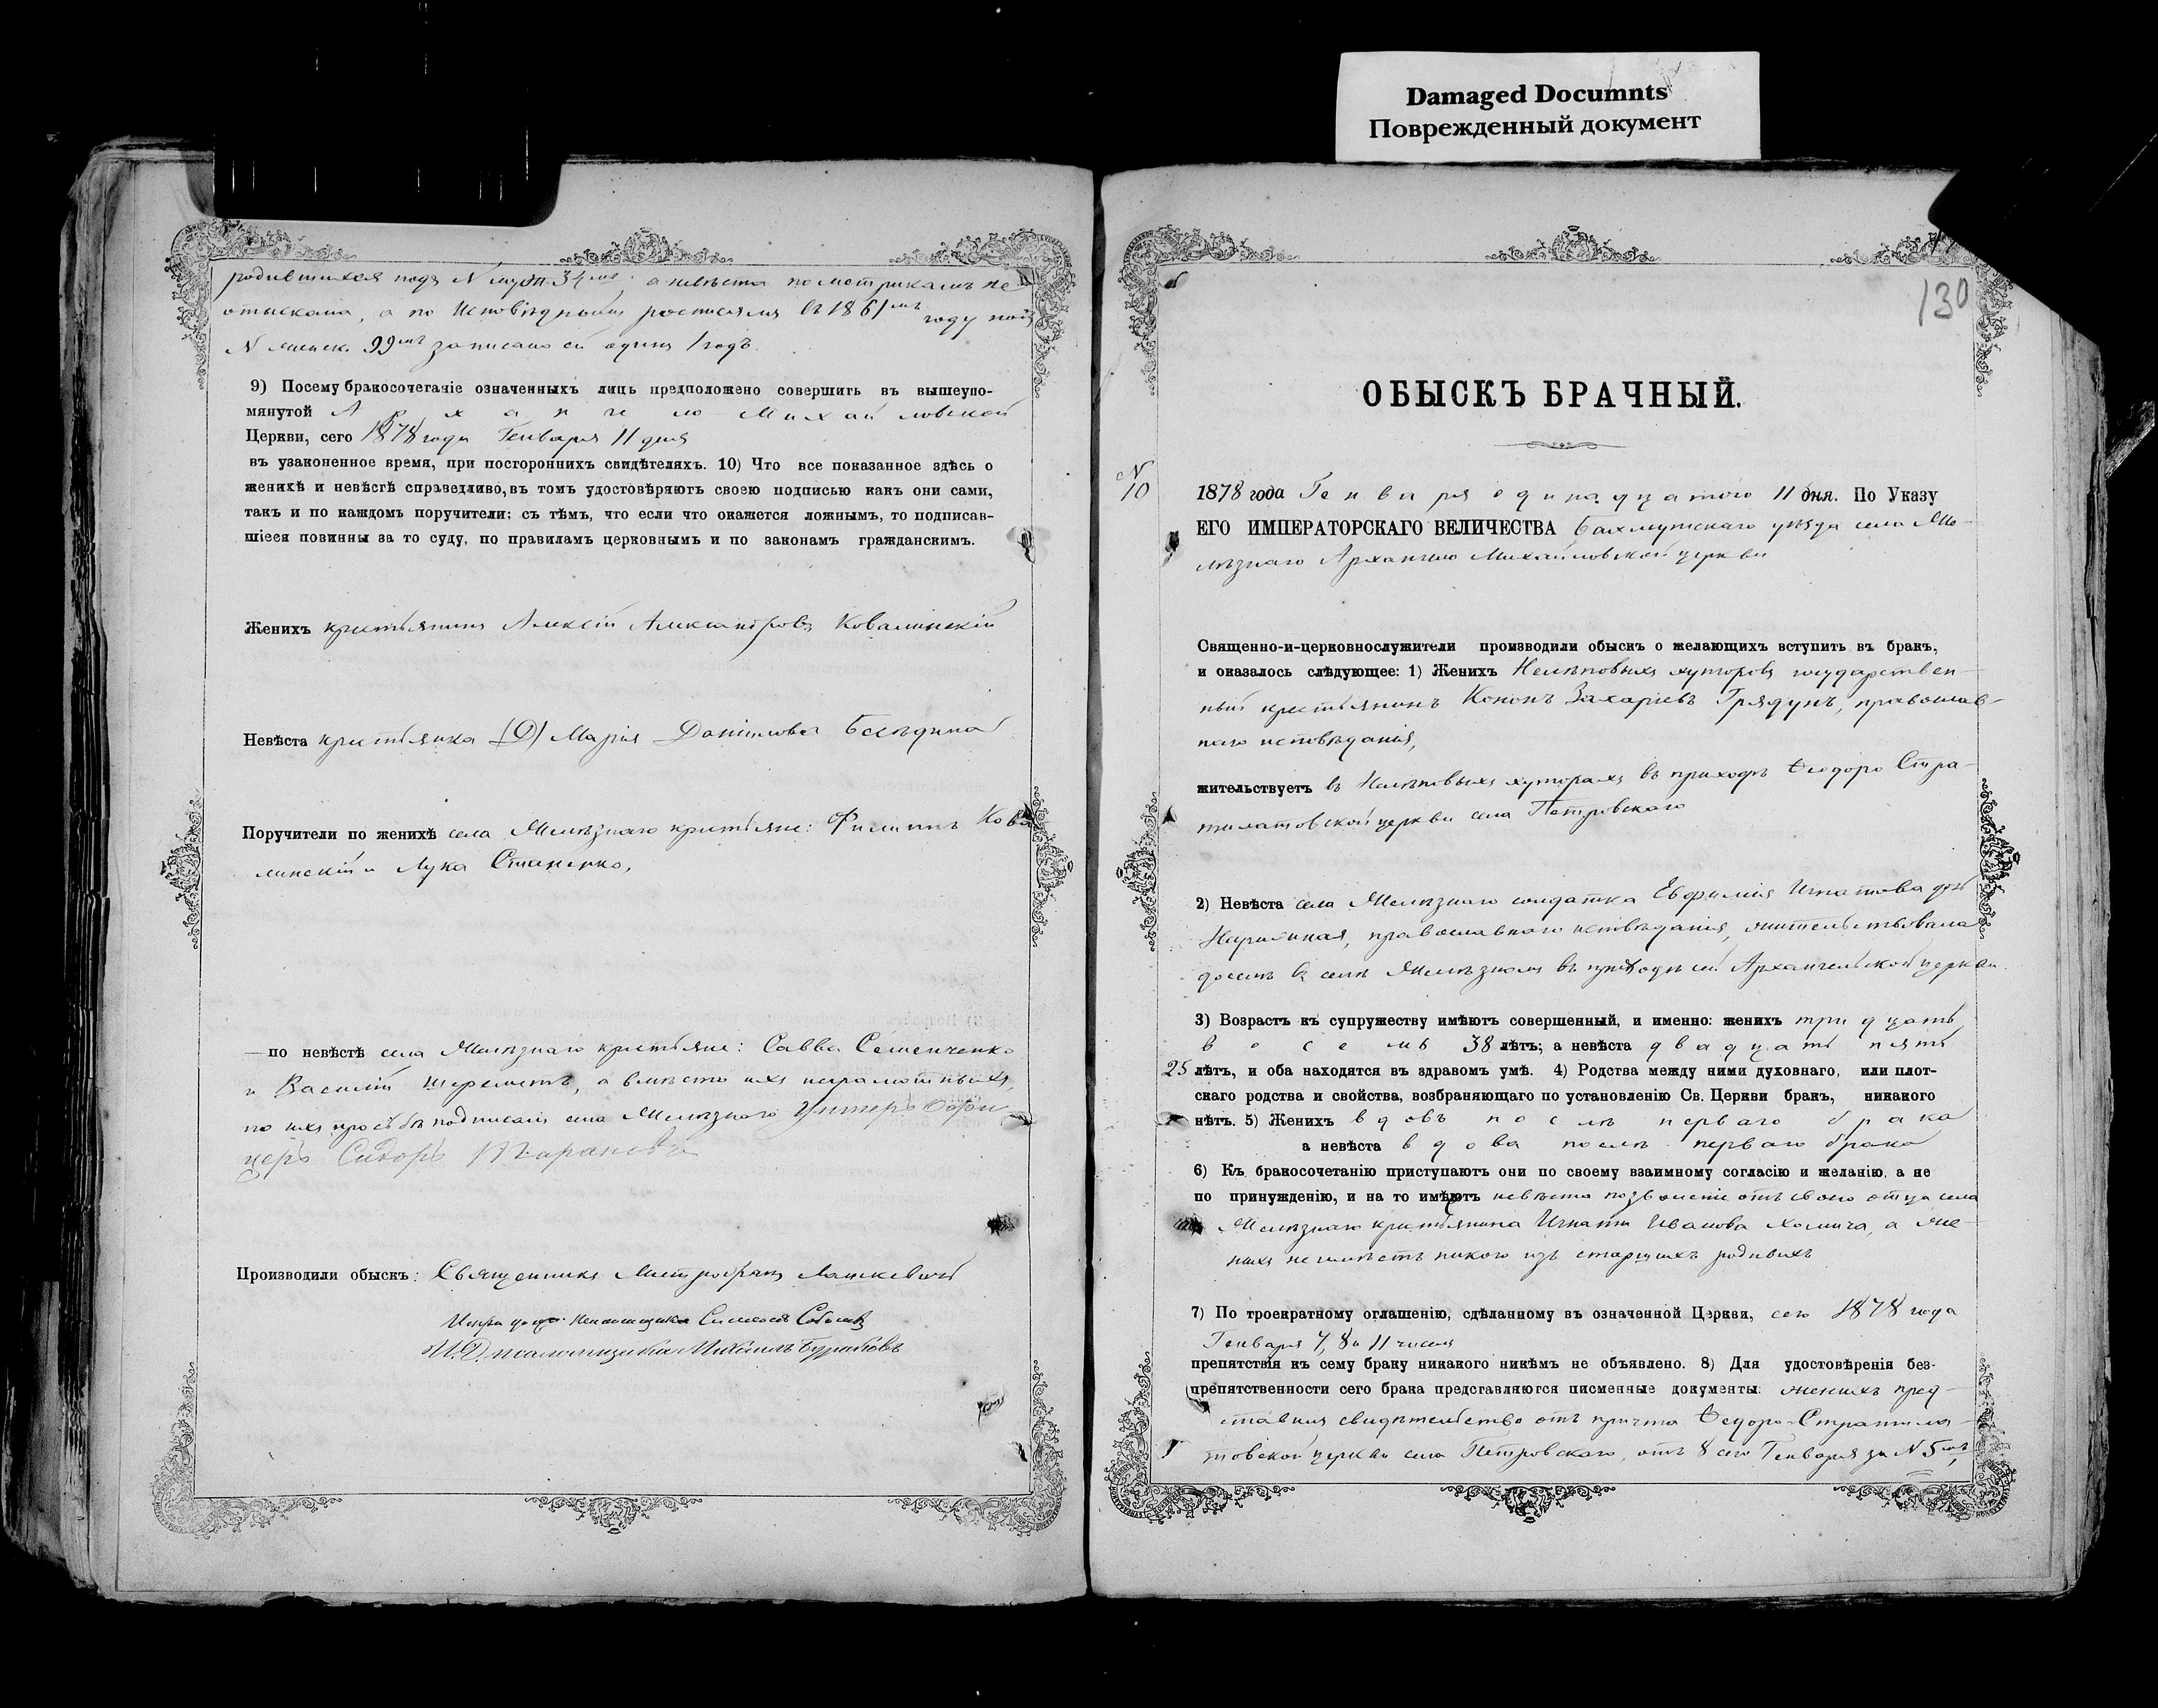 Damaged Documnts
Поврежденный документ
родившихся подъ N муж. 34мъ, а невѣста по метрикамъ не
отыскана, а по Исповѣднымъ росписямъ въ 1861мъ году подъ
N женск. 99мъ записано ей одинъ 1 годъ.
9) Посему бракосочетаніе означенныхъ лицъ предположено совершить въ вышеупо-
мянутой Архангело-Михайловской
Церкви, сего 1878 года Генваря 11 дня
въ узаконенное время, при постороннихъ свидѣтеляхъ. 10) Что все показанное здѣсь о
женихѣ и невѣстѣ справедливо, въ томъ удостовѣряютъ своею подписью какъ они сами,
такъ и по каждомъ поручители; съ тѣмъ, что если что окажется ложнымъ, то подписав-
шіеся повинны за то суду, по правиламъ церковнымъ и по законамъ гражданскимъ.
Женихъ крестьянинъ Алексій Александровъ Ковалинскій
Невѣста крестьянка (D) Марія Данилова Бесѣдина
Поручители по женихѣ села Желѣзнаго крестьяне: Филиппъ Кова
линскій и Лука Стаценко,
—по невѣстѣ села Желѣзнаго крестьяне: Савва Семенченко
и Василій Шереметъ, а вмѣсто ихъ неграмотныхъ,
по ихъ просьбѣ подписалъ села Желѣзнаго Унтеръ Офи
церъ Сидоръ Тарановъ
Производили обыскъ: Священникъ Митрофанъ Лашкевичъ
Псаломщика Соболевъ
И. Д. псаломщика Михаилъ Буряковъ
130
ОБЫСКЪ БРАЧНЫЙ.
N 10
1878 года Генваря одинадцатого 11 дня. По Указу
ЕГО ИМПЕРАТОРСКАГО ВЕЛИЧЕСТВА Бахмутскаго уѣзда села Же-
лѣзнаго Архангело Михайловской церкви
Священно-и-церковнослужители производили обыскъ о желающихъ вступить въ бракъ,
и оказалось слѣдующее: 1) Женихъ Нелѣповыхъ хуторовъ государствен-
ный крестьянинъ Кононъ Захаріевъ Грядунъ, православ-
наго исповѣданія,
жительствуетъ въ Нелѣповыхъ хуторахъ въ приходѣ Ѳеодоро Стра-
тилатовской церкви села Петровскаго
2) Невѣста села Желѣзнаго солдатка Евфимія Игнатова дочь
православнаго исповѣданія, жительствовала
доселѣ въ селѣ Желѣзномъ въ приходѣ сей Архангельской церкви.
3) Возрастъ къ супружеству имѣютъ совершенный, и именно: женихъ тридцать
восемь 38 лѣтъ; а невѣста двадцать пять
25 лѣтъ, и оба находятся въ здравомъ умѣ. 4) Родства между ними духовнаго, или плот-
скаго родства и свойства, возбраняющаго по установленію Св. Церкви бракъ, никакого
нѣтъ. 5) Женихъ вдовъ послѣ перваго брака
а невѣста вдова послѣ перваго брака
6) Къ бракосочетанію приступаютъ они по своему взаимному согласію и желанію, а не
по принужденію, и на то имѣютъ невѣста позволеніе отъ своего отца села
Желѣзнаго крестьянина Игнатія Иванова Хомича, а же-
нихъ не имѣетъ никого изъ старшихъ родныхъ
7) По троекратному оглашенію, сдѣланному въ означенной Церкви, сего 1878 года
Генваря 7, 8 и 11 числа
препятствія къ сему браку никакого никѣмъ не объявлено. 8) Для удостовѣренія без-
препятственности сего брака представляются писменные документы: женихъ пред-
ставилъ свидѣтельство отъ причта Ѳедоро-Стратила-
товской церкви села Петровскаго, отъ 8 сего Генваря за N 5мъ,